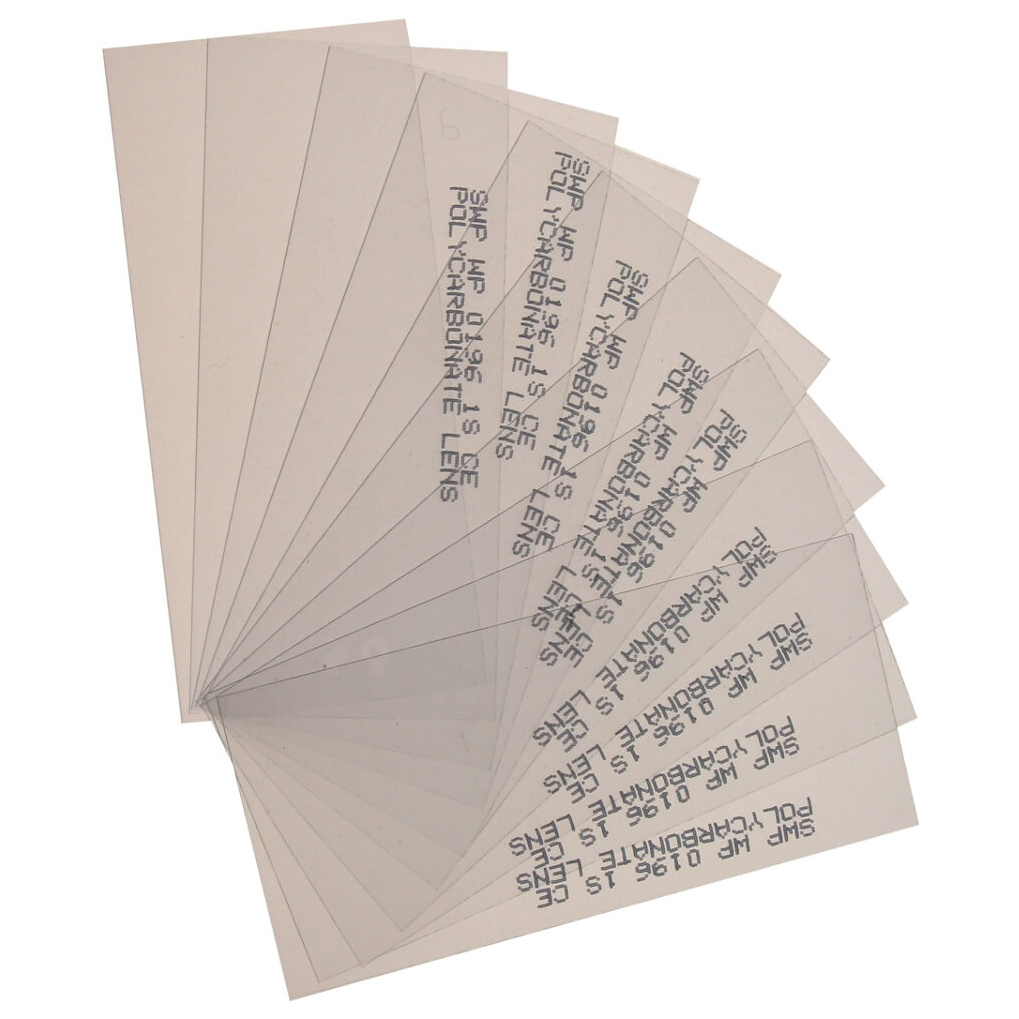 SWP WP 0196 1S CE
POLYCARBONATE LENS
SWP WP 0196 1S CE
POLYCARBONATE LENS
SWP WP 0196 1S CE
POLYCARBONATE LENS
SWP WP 0196 1S CE
POLYCARBONATE LENS
SWP WP 0196 1S CE
POLYCARBONATE LENS
SWP WP 0196 1S CE
POLYCARBONATE LENS
SWP WP 0196 1S CE
POLYCARBONATE LENS
SWP WP 0196 1S CE
POLYCARBONATE LENS
SWP WP 0196 1S CE
POLYCARBONATE LENS